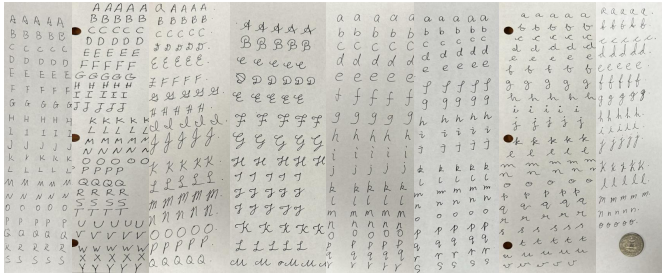 A A A A A
B B B B B
C C C C C
D D D D D
E E E E E
F F F F F
G G G G G
H H H H H
I I I I I
J J J J J
K K K K K
L L L L L
M M M M M
N N N N N
O O O O O
P P P P P
Q Q Q Q Q
R R R R R
S S S S S
A A A A A
B B B B B
C C C C C
D D D D D
E E E E E
F F F F F
G G G G G
H H H H H
I I I I I
J J J J J
K K K K K
L L L L L
M M M M M
N N N N N
O O O O O
P P P P
Q Q Q Q
R R R R
S S S S
T T T T
U U U U U
V V V V V
W X X X X
X X X X X
Y Y Y Y Y
a A A A A
B B B B B
C C C C C
D D D D D
E E E E E
F F F F F
H H H H H
K K K K K
L L L L L
M M M M M
N N N N N
O O O O O
P P P P P
Q Q Q Q Q
A A A A A
B B B B B
D D D D D D
E E E E E
F F F F F
H H H H H
K K K K K
L L L L L
a a a a
b b b b
c c c c
d d d d
e e e e
f f f f
g g g g
h h h h
i i i i
j j j j
k k k k
l l l l
m m m m
n n n n
o o o o
p p p p
q q q q
r r r r
a a a a
b b b b
c c c c
d d d d
e e e e
f f f f
g g g g
h h h h
i i i i
j j j j
k k k k
l l l l
m m m m
n n n n
o o o o
p p p p
q q q q
r r r r
s s s s
a a a a a
b b b b b
c c c c c
d d d d d
e e e e e
f f f f f
g g g g g
h h h h h
i i i i i
j j j j j
k k k k k
l l l l l
m m m m m
n n n n n
o o o o o
p p p p p
q q q q q
r r r r r
s s s s s
t t t t t
u u u u u
v v v v v
a a a a a
b b b b b
c c c c c
d d d d d
e e e e e
f f f f f
g g g g g
h h h h h
i i i i i
j j j j j
k k k k k
l l l l l
m m m m m
n n n n n
o o o o o